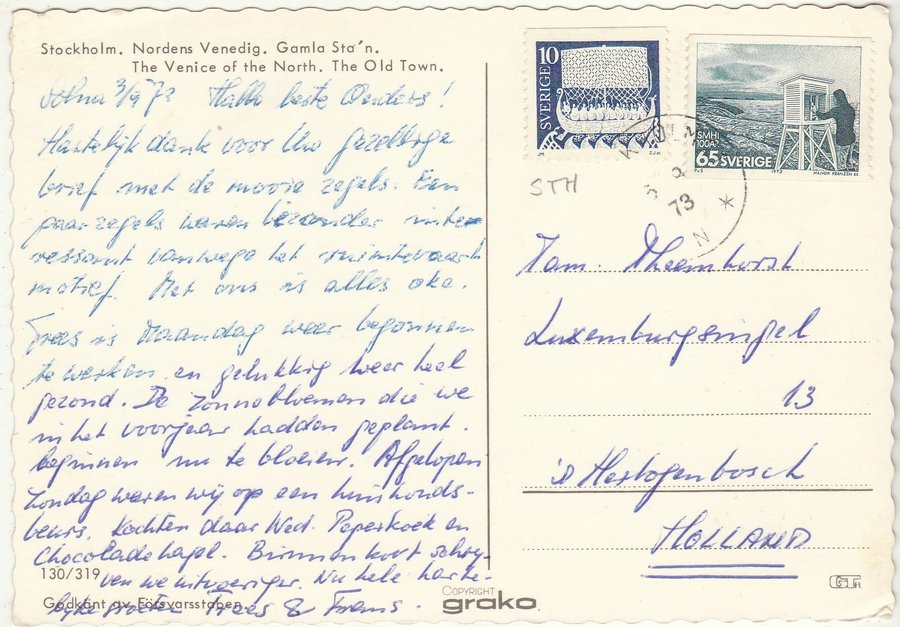 Stockholm. Nordens Venedig. Gamla Sta'n.
The Venice of the North. The Old Town.
Solna 3/9 73 Hallo beste Ouders!
Hartelijk dank voor Uw gezellige
brief met de mooie zegels. Een
paar zegels waren bizonder inte-
ressant vanwege het ruimtevaart
motief. Met ons is alles oke.
Trees is Maandag weer begonnen
te werken en gelukkig weer heel
gezond. De zonnebloemen die we
in het voorjaar hadden geplant.
beginnen nu te bloeien. Afgelopen
Zondag waren wij op een huishouds-
beurs. Kochten daar Ned. Peperkoek en
Chocolade hagel. Binnenkort schrij-
ven we uitvoeriger. Nu hele harte-
lijke groeten Trees & Frans.
130/319
Godkänt av Försvarsstaben
COPYRIGHT
grako
SVERIGE 10
SMHI
100 ÅR
65 SVERIGE
1973
73
N *
STH
Fam. Theemhorst
Luxemburgsingel
13
's Hertogenbosch
HOLLAND